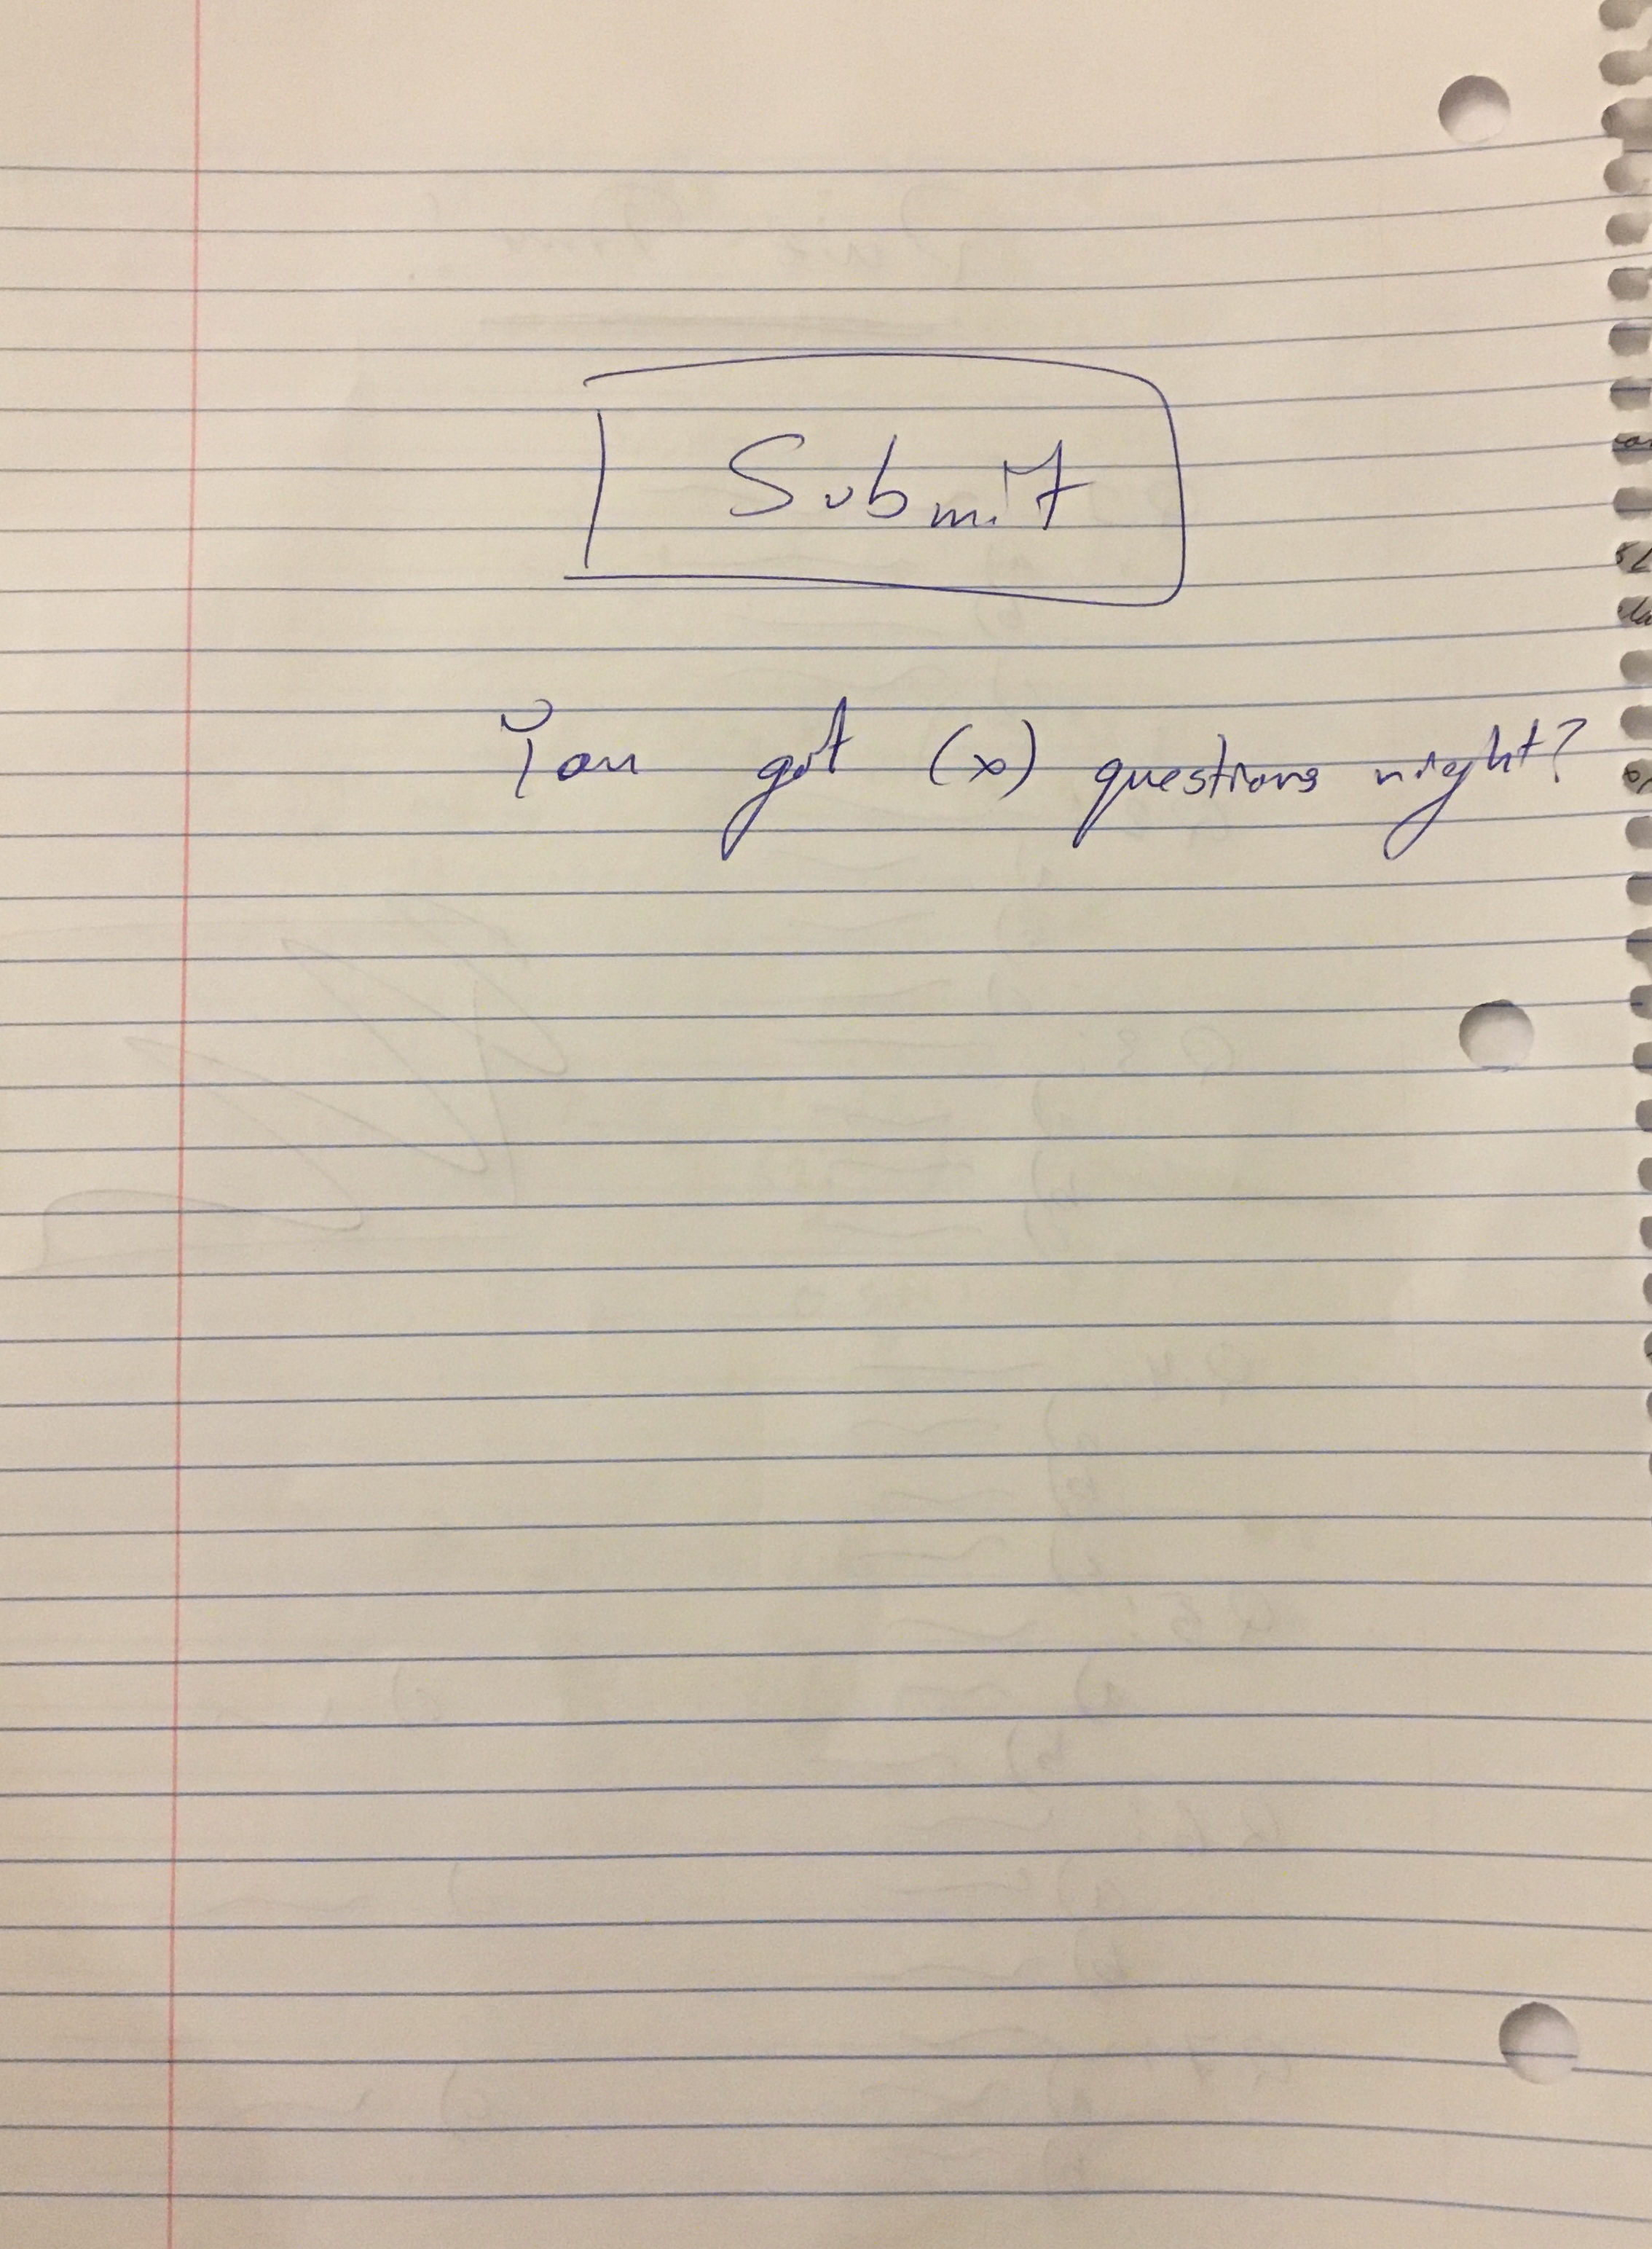 Submit
You got (x) questions right?